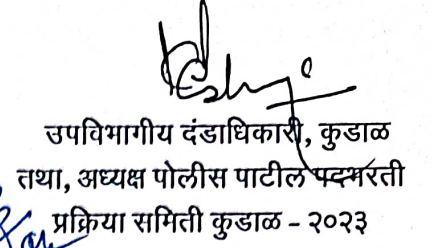 उपविभागीय दंडाधिकारी, कुडाळ
तथा, अध्यक्ष पोलीस पाटील पदभरती
प्रक्रिया समिती कुडाळ - २०२३